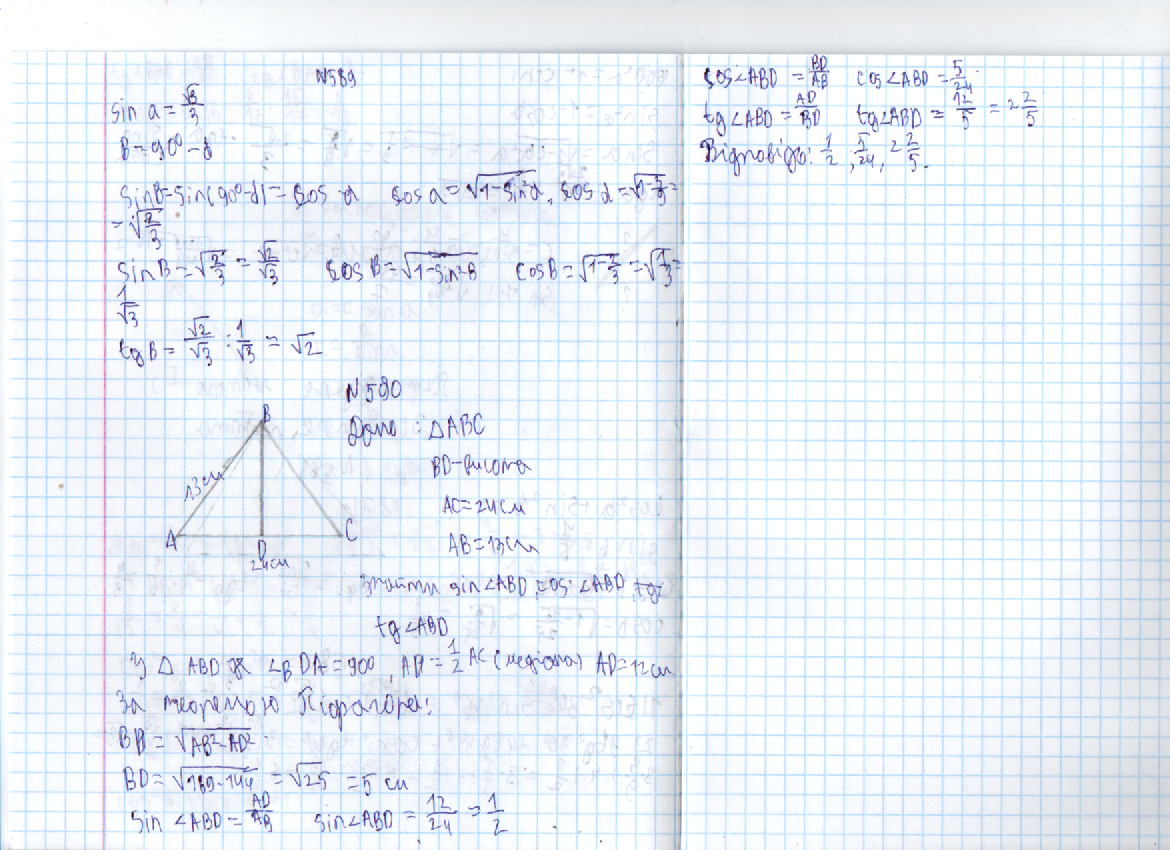 N589
sin a = √3/3
B = 90° - α
sinB = sin(90° - α) = cos α cos a = √(1 - sin²α), cos α = √(1 - 3/9) =
= √(2/3)
sin B = √(2/3) = √2/√3 cos B = √(1 - sin²B) cosB = √(1 - 2/3) = √(1/3) =
1/√3
tg B = √2/√3 : 1/√3 = √2
N 590
Дано : △ABC
BD - висота
AC = 24 см
AB = 13 см
B
13 см
A
D
C
24 см
Знайти sin∠ABD, cos ∠ABD, tg
tg∠ABD
У △ ABD ∠BDA = 90°, AD = 1/2 AC (медіана) AD = 12 см
За теоремою Піфагора:
BD = √(AB² - AD²)
BD = √(169 - 144) = √25 = 5 см
sin ∠ABD = AD/AB sin∠ABD = 12/24 = 1/2
cos∠ABD = BD/AB cos∠ABD = 5/24
tg∠ABD = AD/BD tg∠ABD = 12/5 = 2 2/5
Відповідь: 1/2, 5/24, 2 2/5.